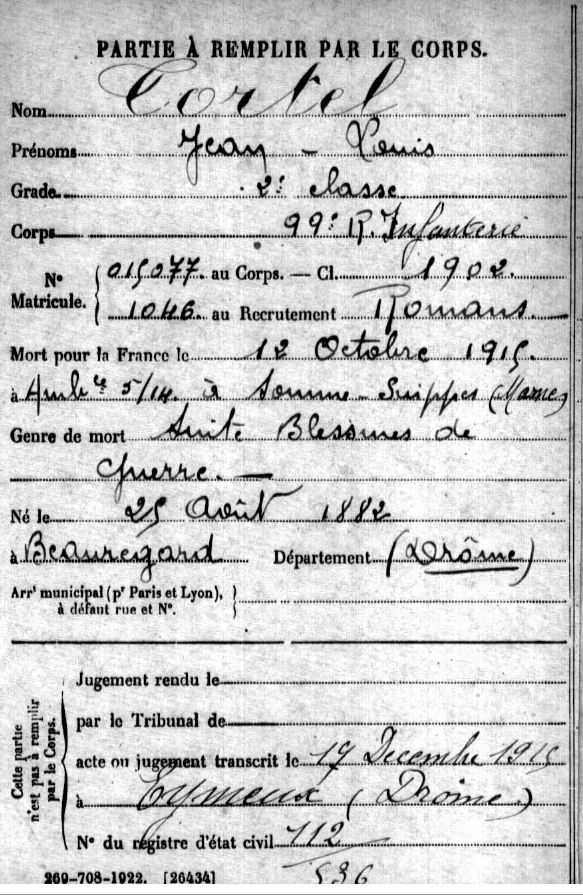 PARTIE À REMPLIR PAR LE CORPS.
Nom Cortel
Prénoms Jean - Louis
Grade 2e classe
Corps 99e R. Infanterie
N° Matricule. 015077. au Corps. — Cl. 1902.
1046. au Recrutement Romans. —
Mort pour la France le 12 Octobre 1915.
à Ambce 5/14. à Somme - Suippes (Marne)
Genre de mort Suite Blessures de
Guerre. —
Né le 25 Août 1882
à Beauregard Département (Drôme)
Arrt municipal (pr Paris et Lyon),
à défaut rue et N°.
Cette partie n'est pas à remplir par le Corps.
Jugement rendu le
par le Tribunal de
acte ou jugement transcrit le 17 Decembre 1915
à Eymeux (Drôme)
N° du registre d'état civil 112
536
269-708-1922. [26434]